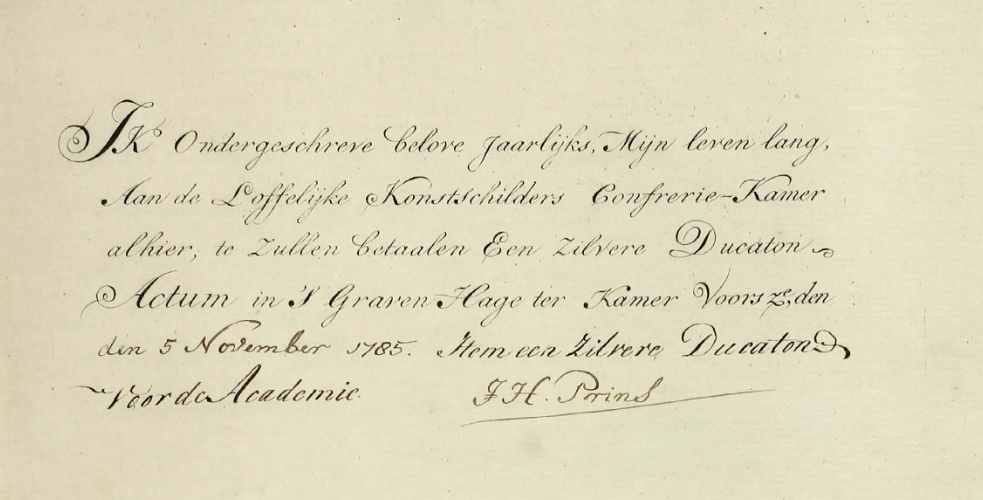 IK Ondergeschreve belove Jaarlijks, Mijn leven lang,
Aan de Loffelijke Konstschilders Confrerie-Kamer
alhier, te zullen betaalen Een zilvere Ducaton
Actum in 'S Graven Hage ter Kamer Voorsze, den
den 5 November 1785. Item een zilvere Ducaton
Voor de Academie. J H. Prins